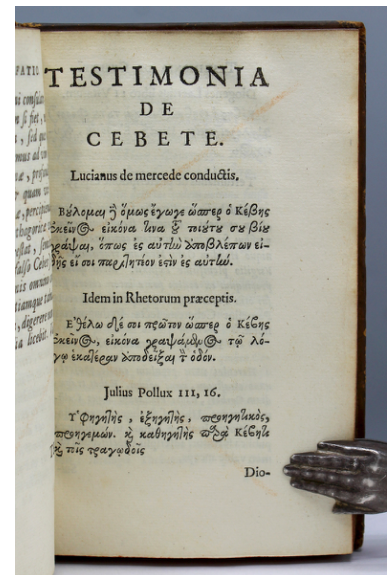 FATIO
TESTIMONIA
DE
CEBETE.
Lucianus de mercede conductis.
Βύλομαι ἢ ὅμως ἔγωγε ὥσπερ ὁ Κέβης
ἐκεῖνος εἰκόνα τινὰ τοιούτου βίου
γράψαι, ὅπως ἐς αὐτὴν ἀποβλέπων εἰ-
δῇς εἴ σοι παριτητέον ἐστὶν ἐς αὐτήν.
Idem in Rhetorum præceptis.
Εθέλω δέ σοι πρῶτον ὥσπερ ὁ Κέβης
ἐκεῖνος, εἰκόνα γραψάμενος τῷ λό-
γῳ ἑκατέραν ὑποδεῖξαι τ ὁδόν.
Julius Pollux III, 16.
Ὑφηγητὴς, ἐξηγητὴς, προηγητικὸς,
προηγεμών. καὶ καθηγητὴς παρὰ Κέβητι
καὶ τοῖς τραγῳδοῖς
Dio-